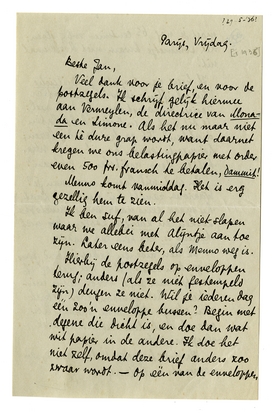 [?-5-'36]
Parijs, Vrijdag.
Beste Jan,
Veel dank voor je brief, en voor de
postzegels. Ik schrijf gelijk hiermee
aan Vermeylen, de directrice van Mona-
da en Simone. Als het nu maar niet
een te dure grap wordt, want daarnet
kregen we ons belastingpapier met order
even 500 frs. fransch te betalen, Dammit!
Menno komt vanmiddag. Het is erg
gezellig hem te zien.
Ik ben suf, van al het niet slapen
waar we allebei met Alijntje aan toe
zijn. Later eens beter, als Menno weg is.
Hierbij de postzegels op enveloppen
terug; anders (als ze niet gestempeld
zijn) deugen ze niet. Wil je iederen dag
één zoo'n enveloppe bussen? Begin met
degene die dicht is, en doe dan wat
wit papier in de andere. Ik doe het
niet zelf, omdat deze brief anders zoo
zwaar wordt. — Op één van de enveloppen,